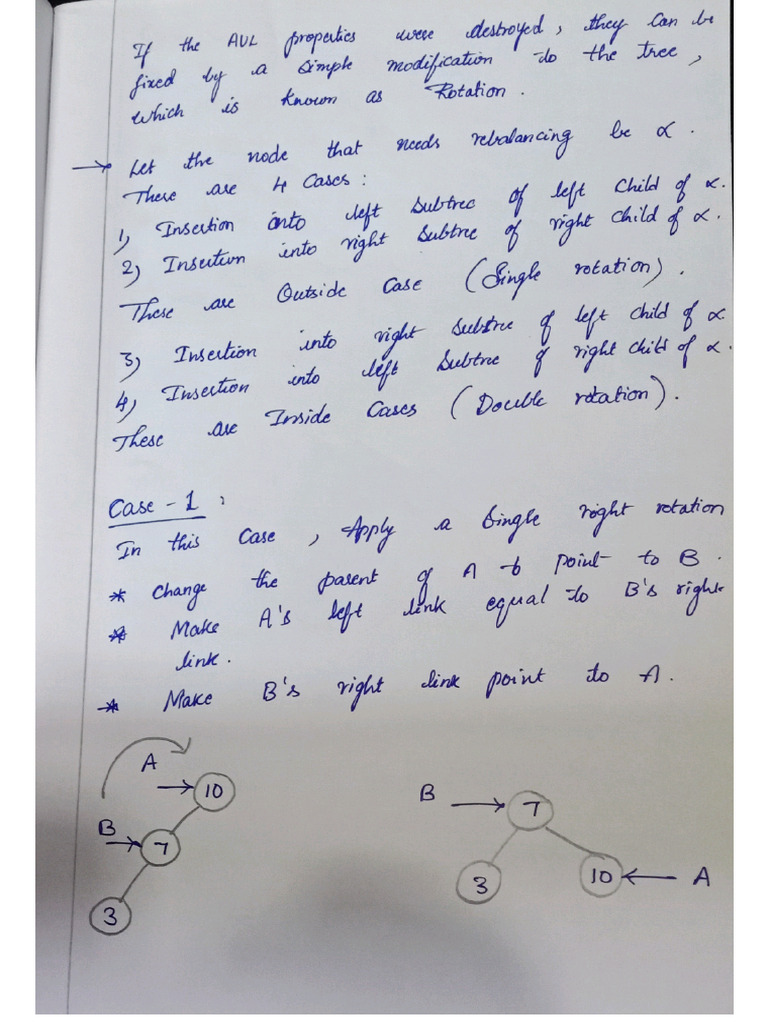 If the AVL properties were destroyed, they can be
fixed by a simple modification to the tree,
which is known as Rotation.
→ Let the node that needs rebalancing be α.
There are 4 Cases:
1) Insertion into left Subtree of left Child of α.
2) Insertion into right Subtree of right Child of α.
These are Outside Case (Single rotation).
3) Insertion into right Subtree of left Child of α
4) Insertion into left Subtree of right Child of α.
These are Inside Cases (Double rotation).
Case - 1 :
In this Case, Apply a Single right rotation
* Change the parent of A to point to B.
* Make A's left link equal to B's right
link.
* Make B's right link point to A.
A → 10
B → 7
3
B → 7
3 10 ← A